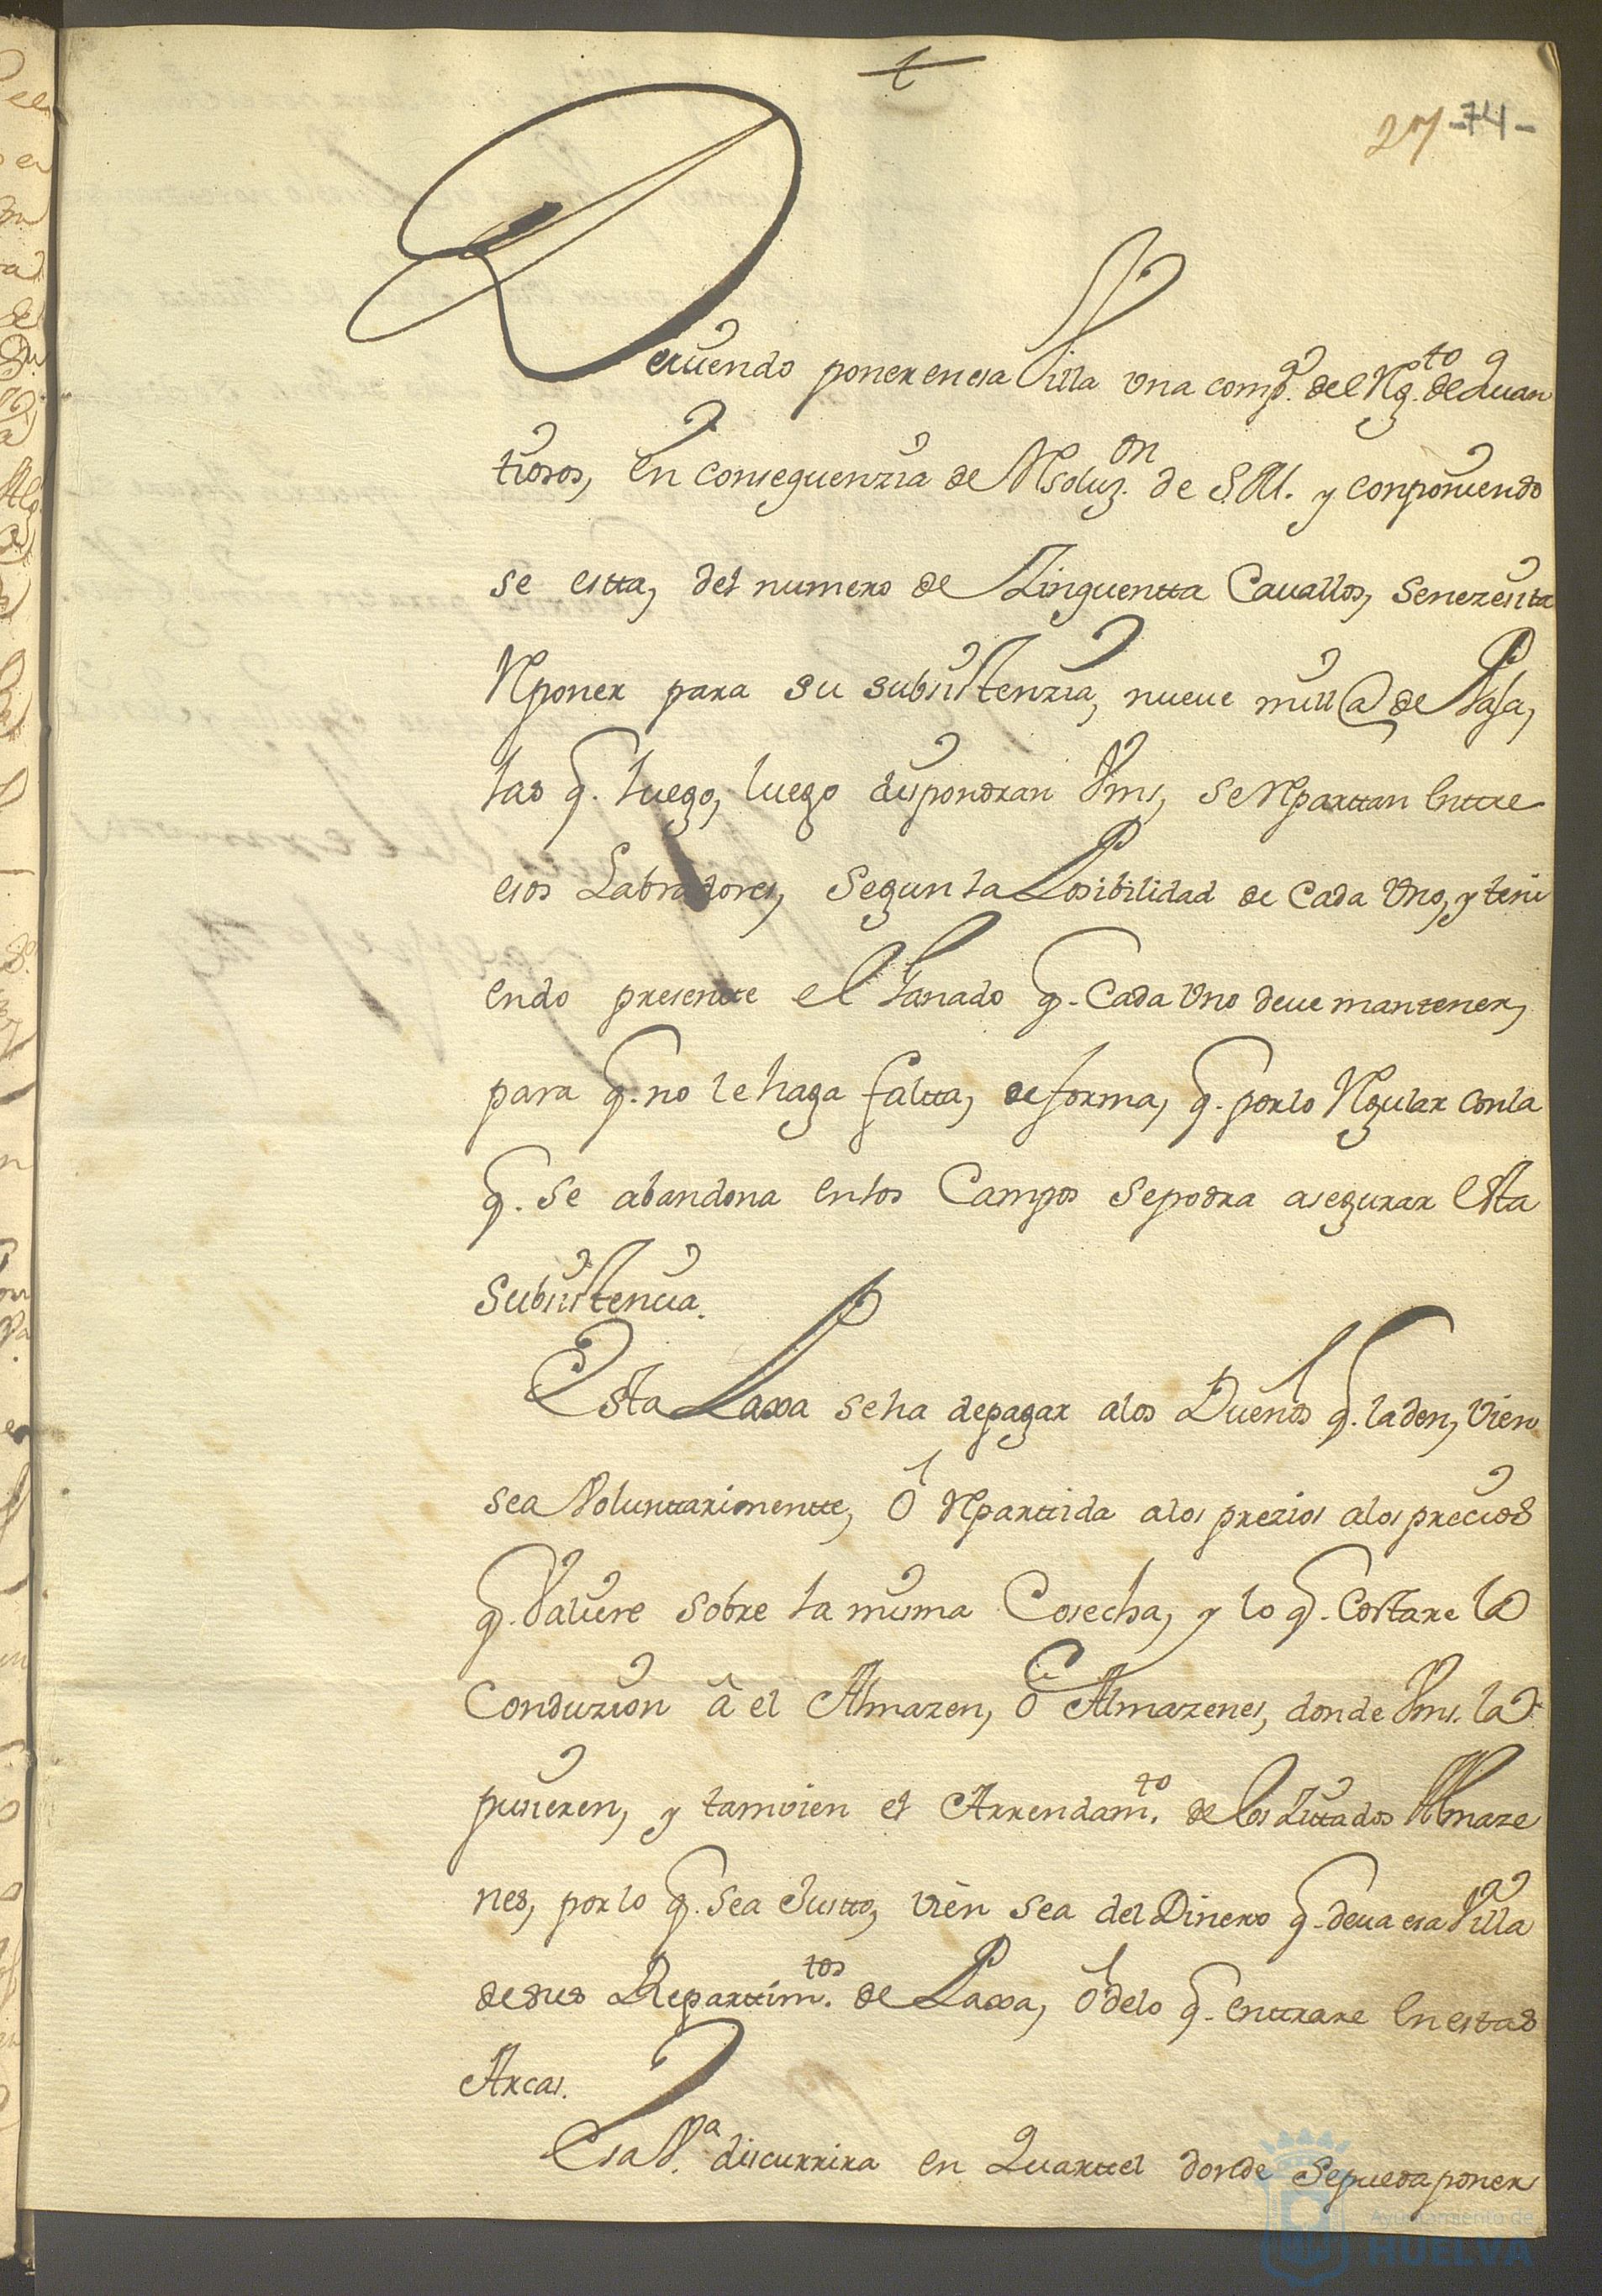 27 -74-
Deviendo poner en esa Villa una comp.ª del Rg.to de quan
tiosos, en conseguenzia de Resoluz.on de S.M. y conponiendo
se estta, del numero de Zinquentta Cauallos, se nezesita
Reponer para su subsistenzia, nueve mill @ de Paja,
las q. luego, luego dispondran Vms, se Reparttan enttre
esos Labradores, segun la Posibilidad de cada Uno, y teni
endo presentte el Ganado q. cada Uno deve mantener,
para q. no le haga faltta, de forma, q. por lo Regular con la
q. se abandona en los Campos se podra asegurar esta
subsistencia.
Esta Paxa se ha de pagar a los Dueños q. la den, vien
sea Voluntariamentte, ó Reparttida a los prezios a los precios
q. Valiere sobre la misma Cosecha, y lo q. costare la
Conduzion â el Almazen, ó Almazenes, donde Vms. la
pusieren, y tamvien el Arrendam.to de los Zittados Almaze
nes, por lo q. sea Justto, vien sea del Dinero q. deva esa Villa
de sus Reparttim.tos de Paxa, ó de lo q. enttrare en estas
Arcas.
Esa V.ª discurrira en Quarttel donde se pueda poner
Ayuntamiento de
HUELVA